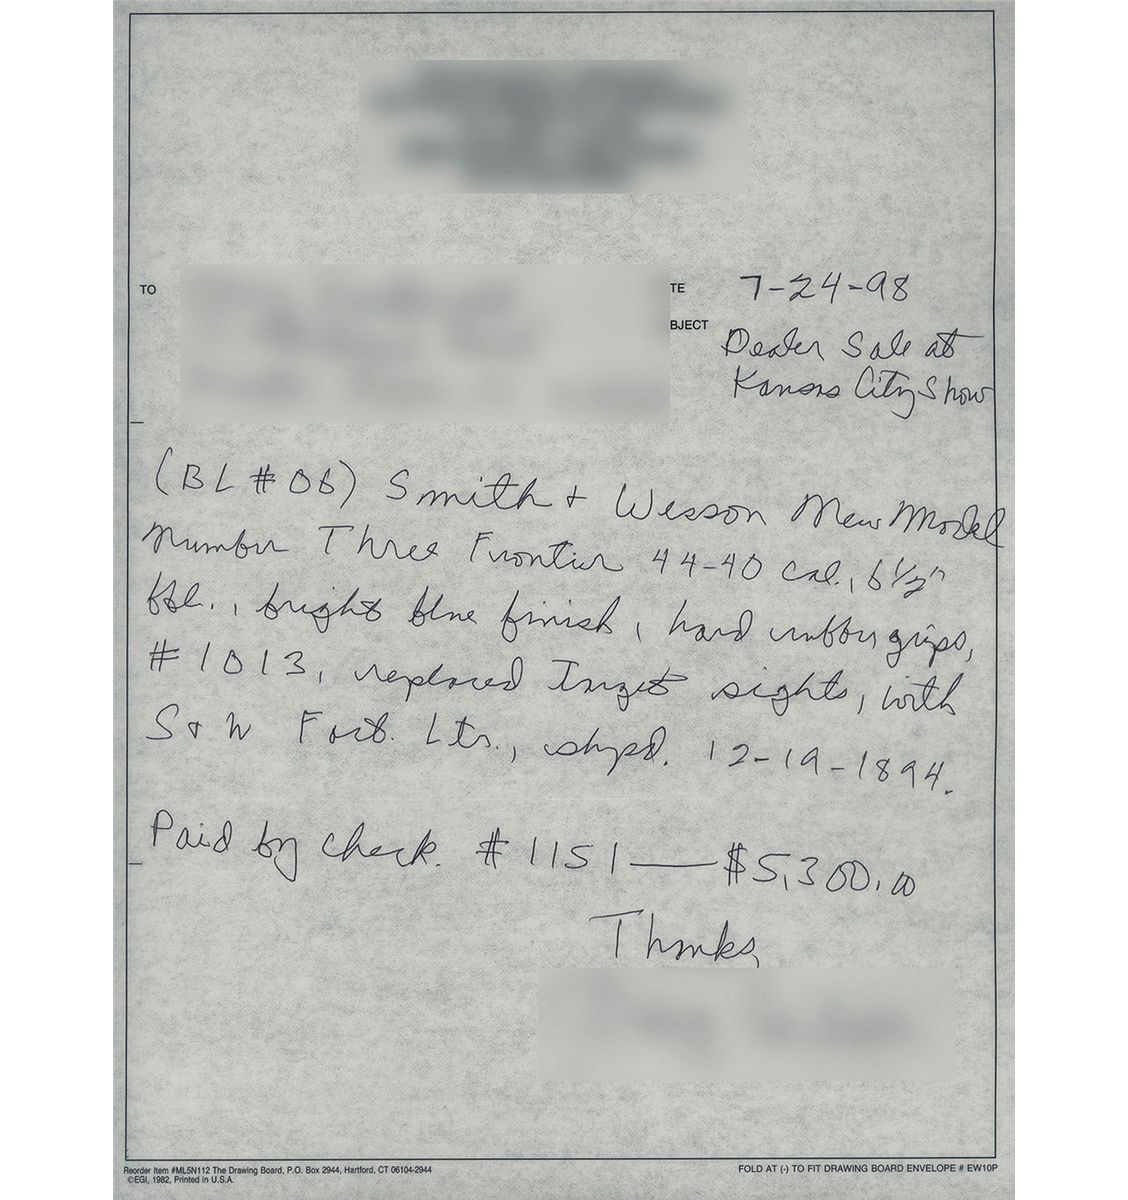 TO
TE 7-24-98
BJECT Dealer Sale at
Kansas City Show
(BL #06) Smith & Wesson New Model
Number Three Frontier 44-40 cal., 6 1/2"
bbl., bright blue finish, hard rubber grips,
#1013, replaced Target sights, with
S & W Fact. Ltr., shpd. 12-19-1894.
Paid by check. #1151 — $5,300.00
Thanks,
Reorder Item #ML5N112 The Drawing Board, P.O. Box 2944, Hartford, CT 06104-2944
©EGI, 1982, Printed in U.S.A.
FOLD AT (-) TO FIT DRAWING BOARD ENVELOPE # EW10P